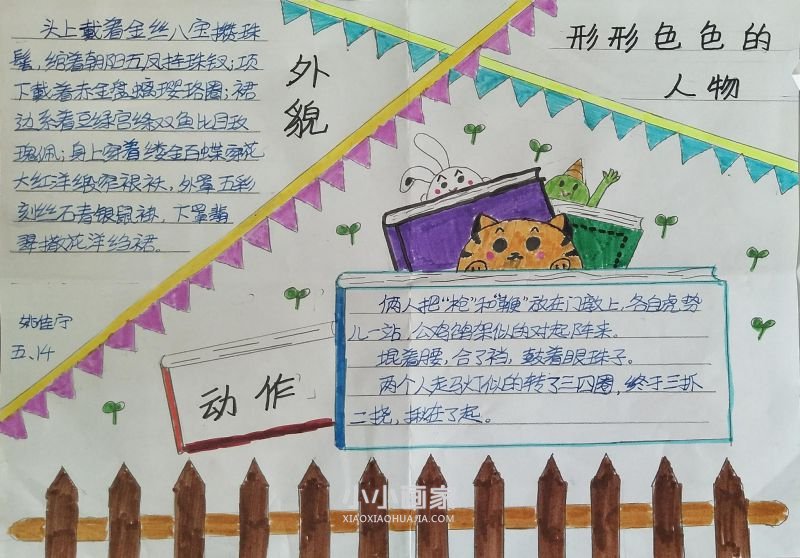 形形色色的
人物
外貌
头上戴着金丝八宝攒珠
髻，绾着朝阳五凤挂珠钗；项
下戴着赤金盘螭璎珞圈；裙
边系着豆绿宫绦双鱼比目玫
瑰佩；身上穿着缕金百蝶穿花
大红洋缎窄裉袄，外罩五彩
刻丝石青银鼠褂，下罩翡
翠撒花洋绉裙。
姚佳宁
五、14
动作
俩人把“枪”和“鞭”放在门墩上，各自虎势
儿一站，公鸡鹐架似的对起阵来。
猫着腰，合了裆，鼓着眼珠子。
两个人走马灯似的转了三四圈，终于三抓
二挠，揪在了起。
小小画家
XIAOXIAOHUAJIA.COM